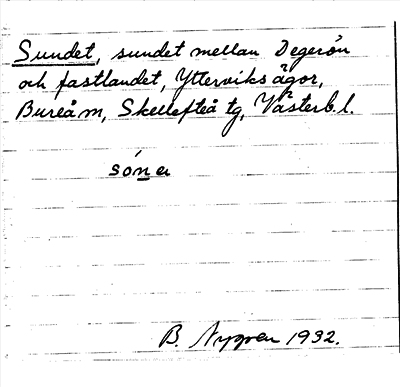 Sundet, sundet mellan Degerön
och fastlandet, Ytterviks ägor,
Bureå m, Skellefteå tg, Västerb. l.
B. Nygren 1932.